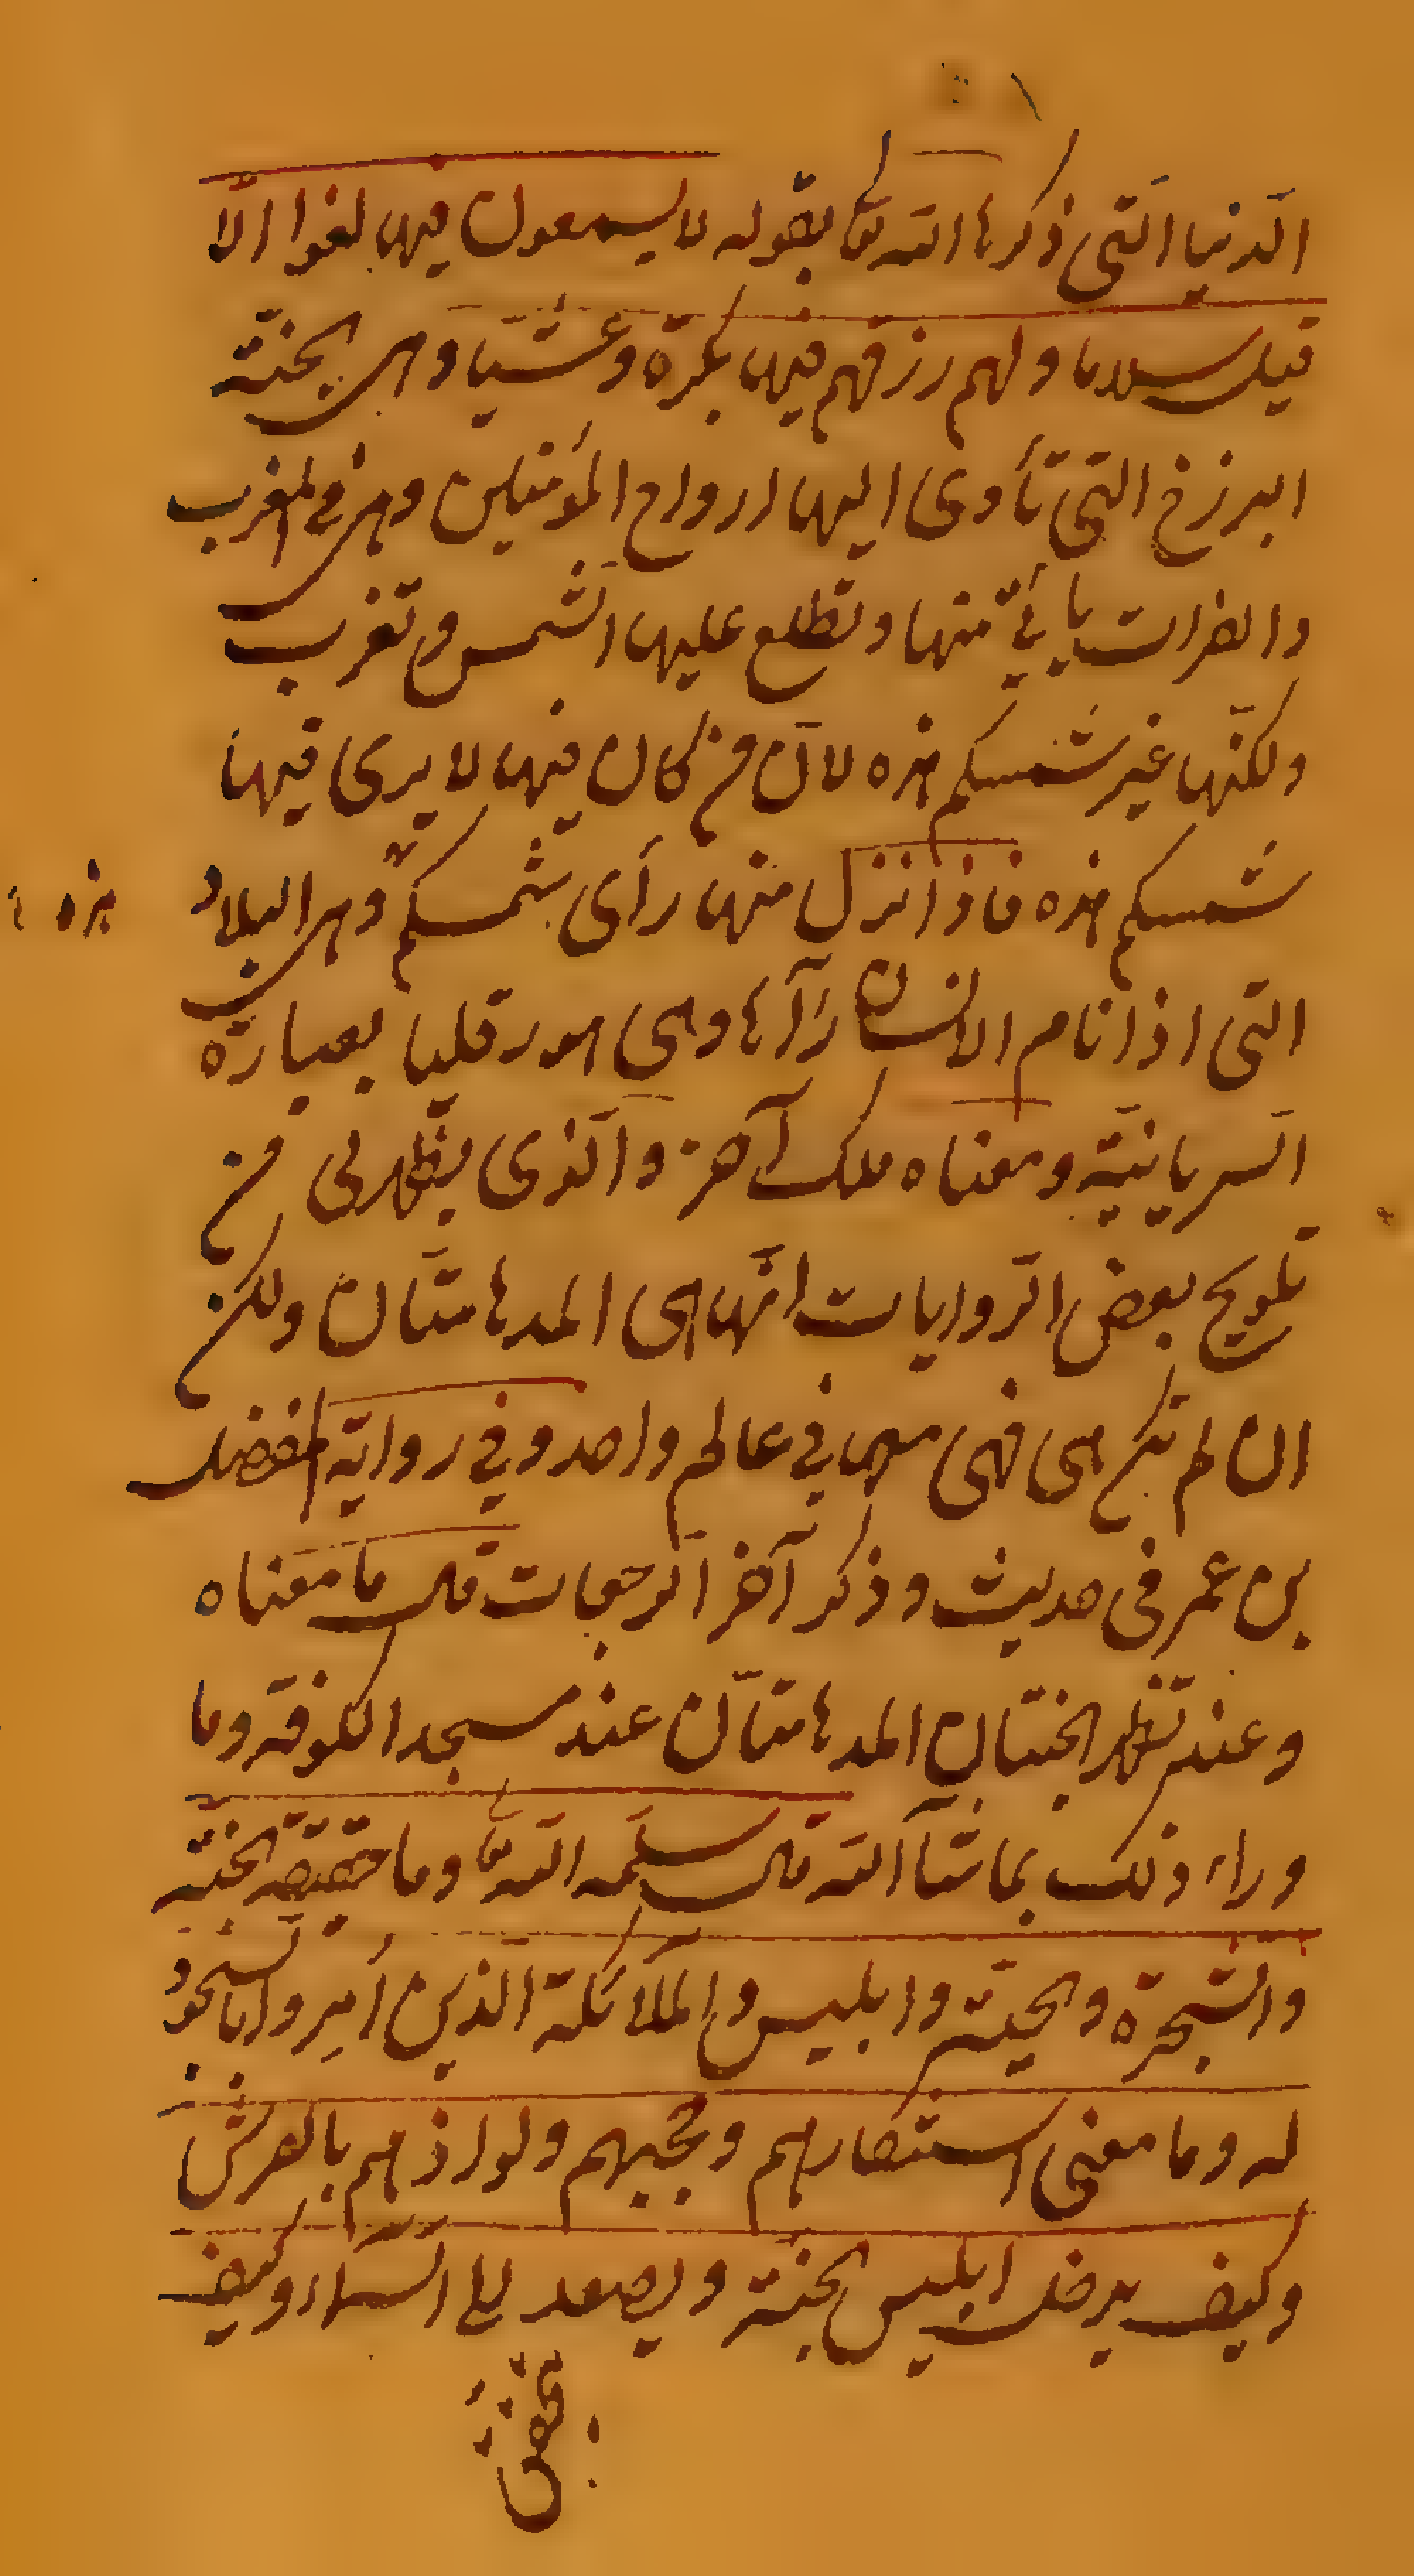 الدنيا التى ذكرها الله تعا بقوله لا يسمعون فيها لغوا الا
قيل سلاما ولهم رزقهم فيها بكرة وعشيا وهى الجنّة
البرزخ التى تأوى اليها ارواح المؤمنين وهى فى المغرب
والفرات يأتى منها وتطلع عليها الشمس وتغرب
ولكنّها غير شمسكم هذه لان من كان فيها لا يرى فيها
شمسكم هذه فاذا نزل منها رأى شمسكم وهى البلاد
هذه
التى اذا نام الانسان رآها وهى هورقليا بعبارة
السريانيّة ومعناه ملك آخر والذى يظهر لى من
تلويح بعض الروايات انّها هى المدهامّتان ولكن
ان لم تكن هى فهى معها فى عالم واحد وفى رواية المفضل
بن عمر فى حديث وذكر آخر الرجعات قال ما معناه
وعند تظهر الجنتان المدهامتان عند مسجد الكوفة وما
وراء ذلك بما شآء الله قال سلّمه الله تعا وما حقيقة الجنّة
والشجرة والحيّة وابليس والملائكة الذين أمروا بالسجود
له وما معنى استكبارهم وحجبهم ولواذهم بالعرش
وكيف يدخل ابليس الجنّة ويصعد الى السمآء وكيف